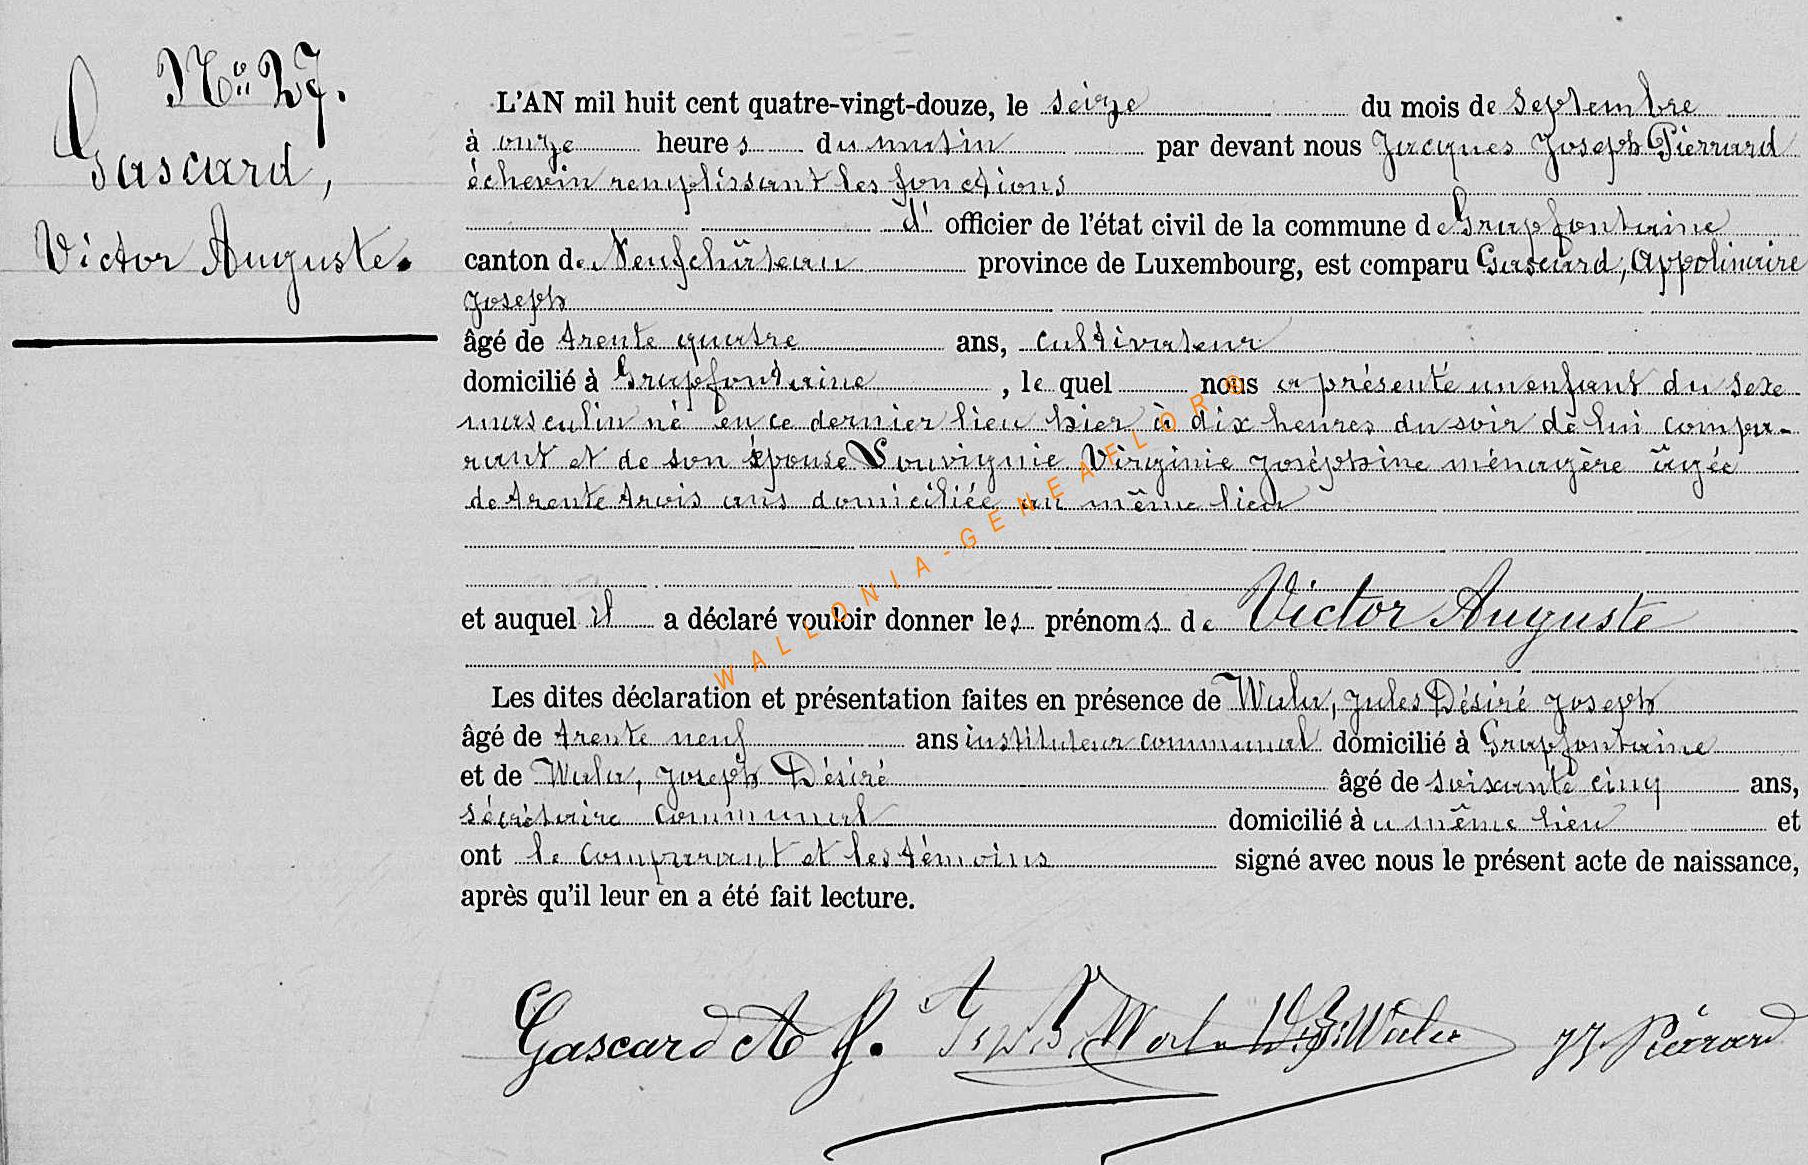 N° 27.
Gascard,
Victor Auguste.
L'AN mil huit cent quatre-vingt-douze, le seize du mois de septembre
à onze heures du matin par devant nous Jacques Joseph Pierrard
échevin remplissant les fonctions
d' officier de l'état civil de la commune de Grapfontaine
canton de Neufchâteau province de Luxembourg, est comparu Gascard, Appolinaire
Joseph
âgé de trente quatre ans, cultivateur
domicilié à Grapfontaine , le quel nous a présenté un enfant du sexe
masculin né en ce dernier lieu hier à dix heures du soir de lui compa-
rant et de son épouse Souvignie Virginie Joséphine ménagère âgée
de trente trois ans domiciliée au même lieu
et auquel il a déclaré vouloir donner les prénoms de Victor Auguste
Les dites déclaration et présentation faites en présence de Wala, Jules Désiré Joseph
âgé de trente neuf ans instituteur communal domicilié à Grapfontaine
et de Wala, Joseph Désiré âgé de soixante cinq ans,
sécrétaire communal domicilié au même lieu et
ont le comparant et les témoins signé avec nous le présent acte de naissance,
après qu'il leur en a été fait lecture.
Gascard A J. Wala Wala JJ. Pierrard
WALLONIA-GENEAFLOR©